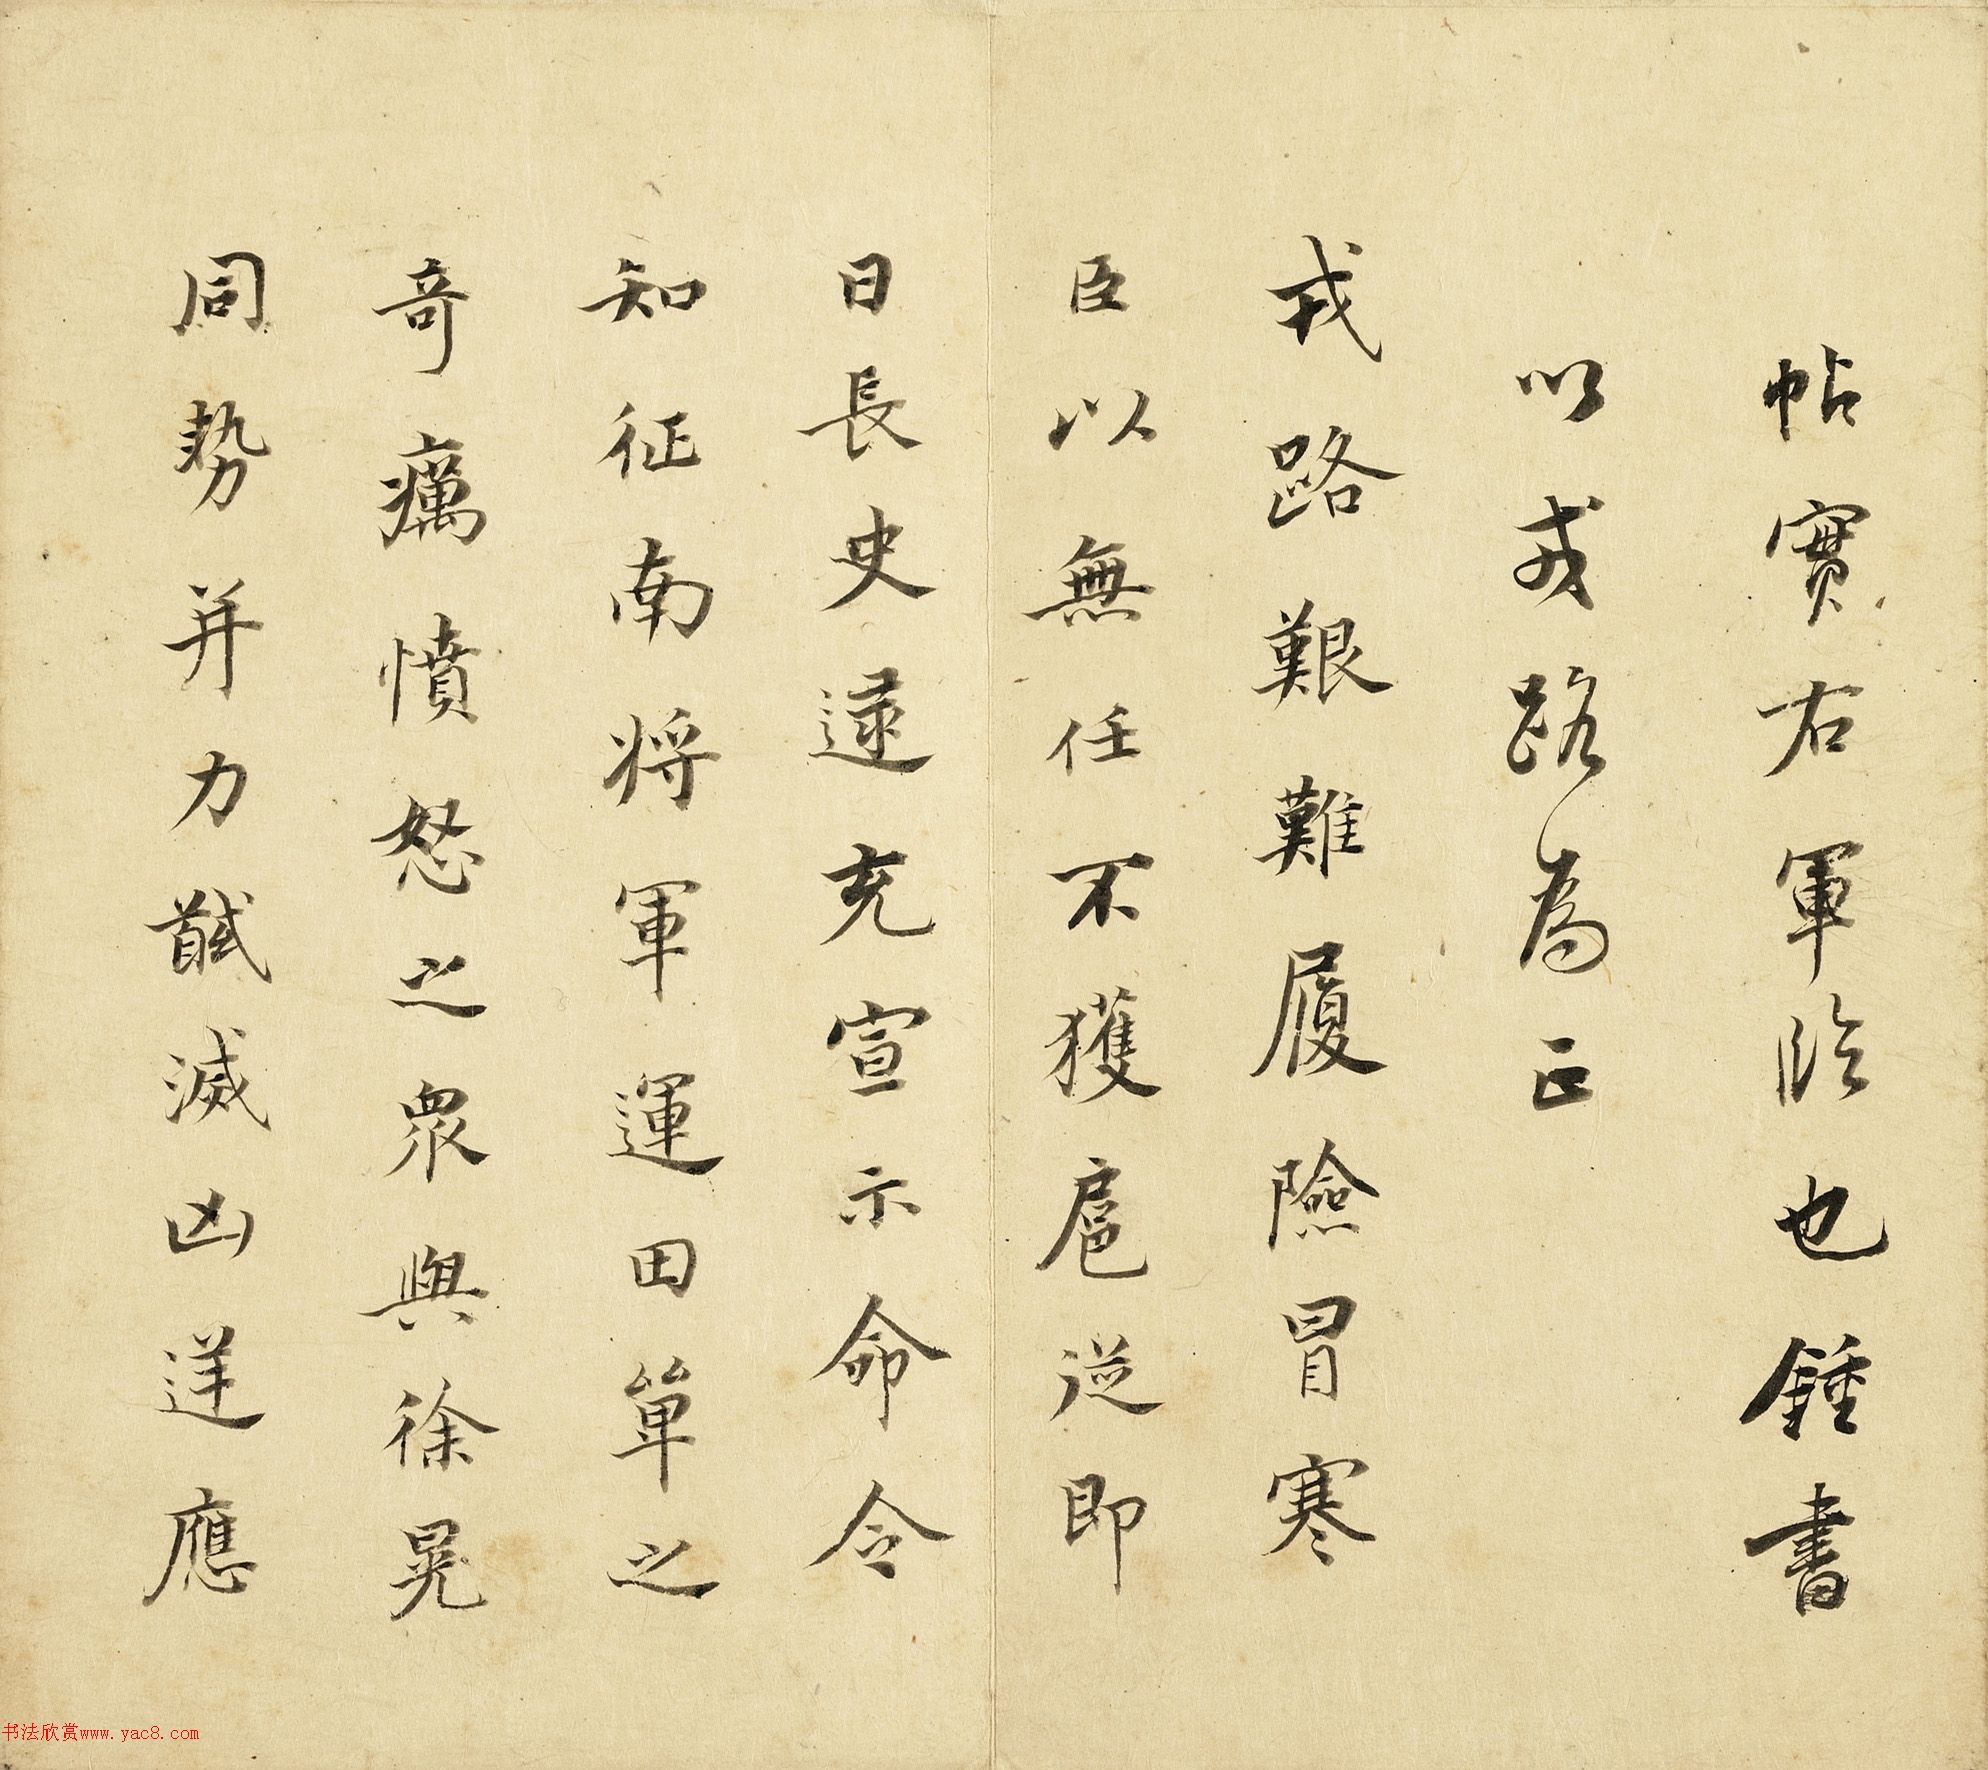 帖實右軍臨也鍾書
以戎路為正
戎路艱難履險冒寒
臣以無任不獲扈從即
日長史逯充宣示命令
知征南將軍運田單之
奇癘憤怒之眾與徐晃
同勢并力馘滅凶逆應
书法欣赏www.yac8.com